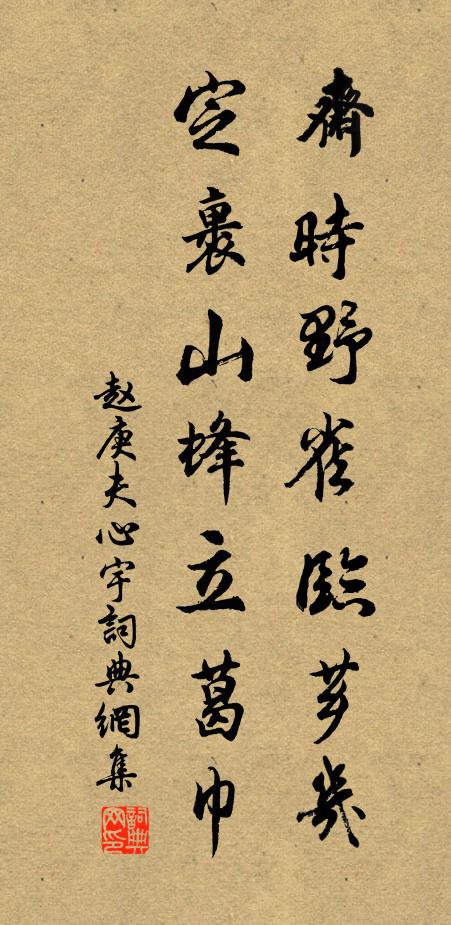 齋時野雀臨茅幾
定裹山蜂立葛巾
赵庚夫心宇詞典網集
詞典网印